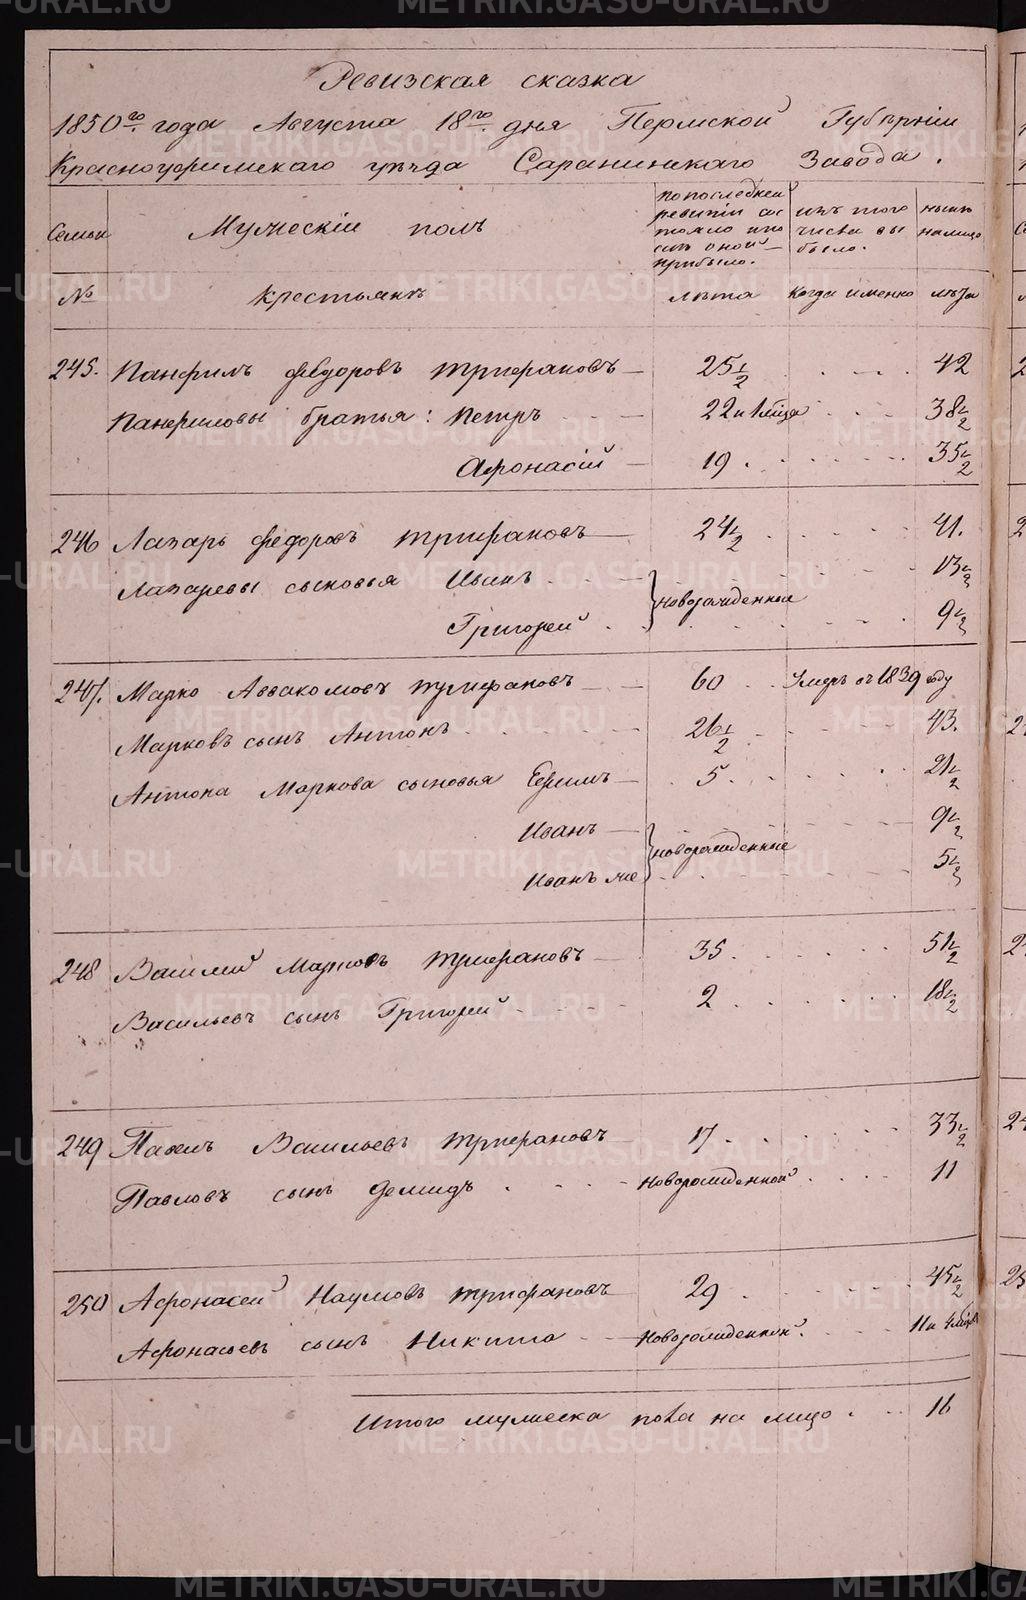 Ревизская сказка
1850го года Августа 18го дня Пермской Губерніи
Красноуфимскаго уѣзда Саранинскаго Завода.
Семьи
Мужескій полъ
по последней ревизіи состояло и после оной прибыло.
изъ того числа выбыло.
нынѣ на лицо
№ крестьянъ лѣта Когда именно лѣта
245. Панфилъ Федоровъ Трифановъ 25 1/2 42
Панфиловы братья: Петръ 22 и 1 мѣсяца 38 1/2
Афонасій 19 35 1/2
246 Лазарь Федоровъ Трифановъ 24 1/2 41.
Лазаревы сыновья Иванъ 13 1/2
новорожденные
Григорей 9 1/2
247. Марко Аввакомовъ Трифановъ 60 Умеръ въ 1839 году
Марковъ сынъ Антонъ 26 1/2 43.
Антона Маркова сыновья Ефимъ 5 21 1/2
Иванъ 9 1/2
новорожденные
Иванъ же 5 1/2
248 Василей Марковъ Трифановъ 35 51 1/2
Васильевъ сынъ Григорей 2 18 1/2
249 Павелъ Васильевъ Трифановъ 17 33 1/2
Павловъ сынъ Демидъ новорожденной 11
250 Афонасей Наумовъ Трифановъ 29 45 1/2
Афонасьевъ сынъ Никита новорожденной. 11 и 4 мѣсяц
Итого мужеска пола на лицо 16
METRIKI.GASO-URAL.RU